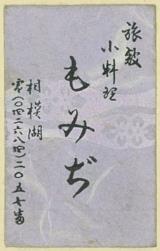 旅館
小料理
もみぢ
相模湖
電(〇四二六八四)二〇五七番